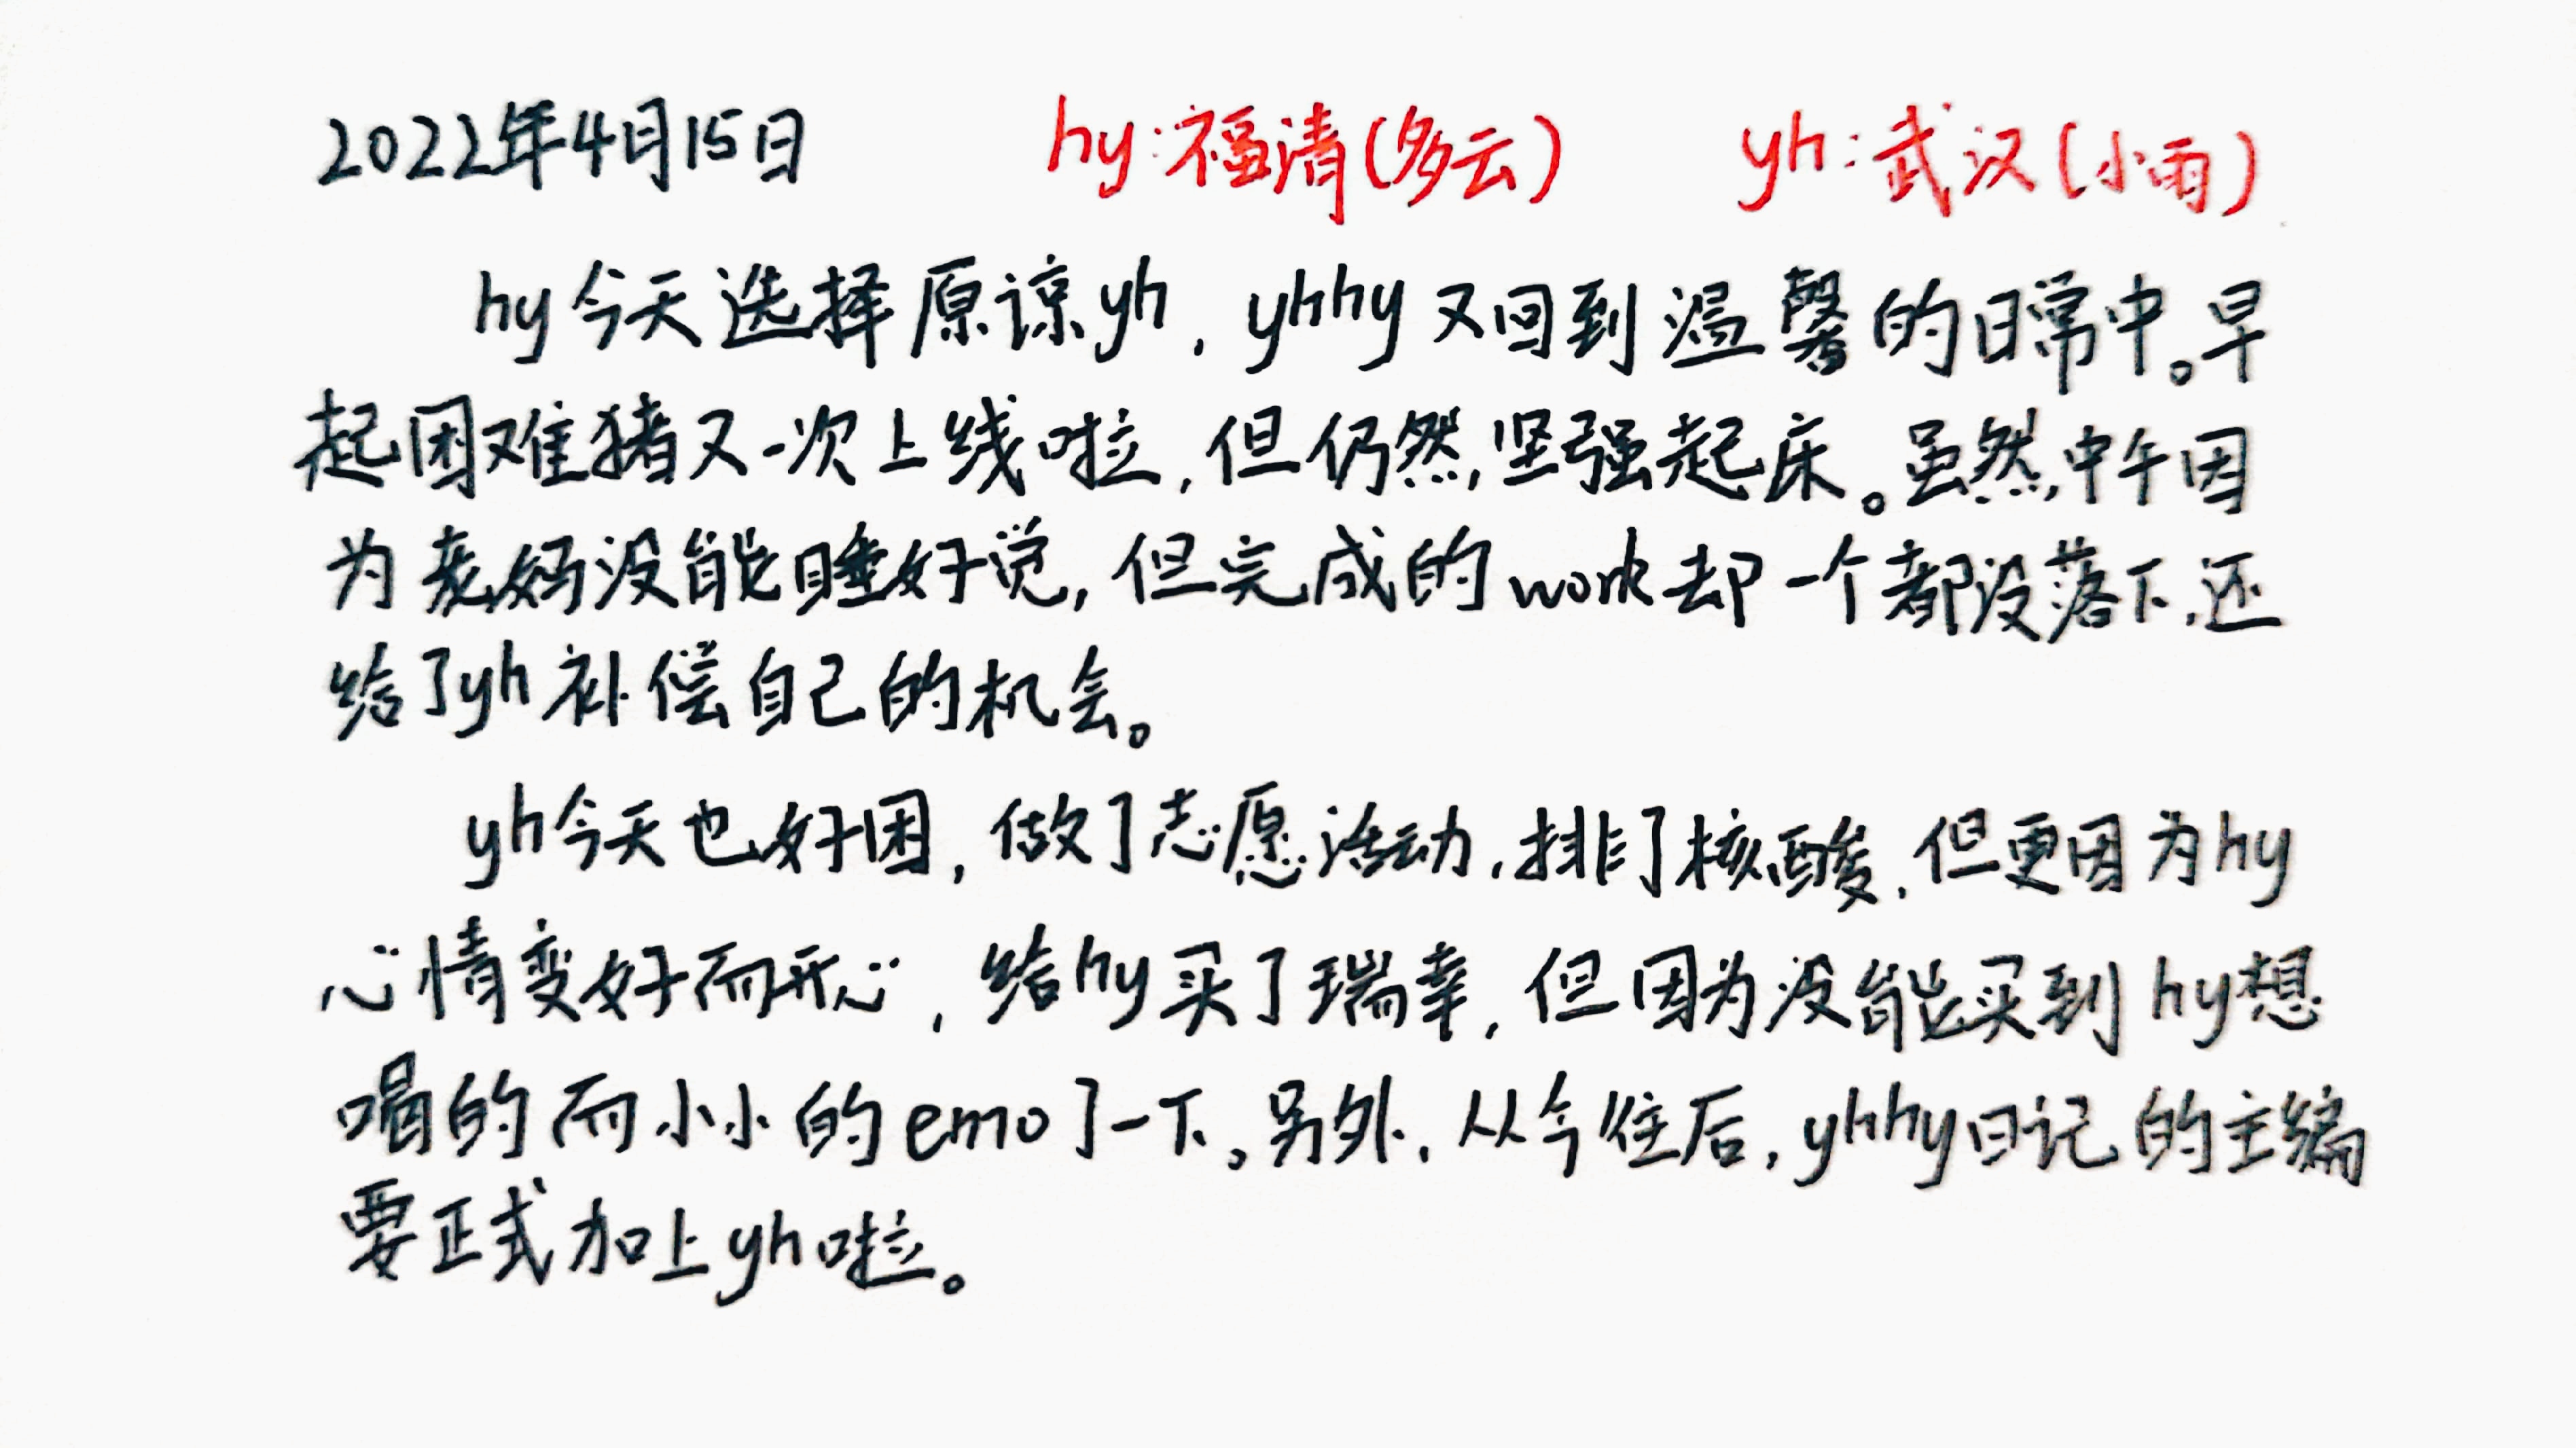 2022年4月15日 hy:福清(多云) yh:武汉(小雨)
hy今天选择原谅yh,yhhy又回到温馨的日常中。早
起困难猪又一次上线啦,但仍然坚强起床。虽然中午因
为老妈没能睡好觉,但完成的work却一个都没落下,还
给了yh补偿自己的机会。
yh今天也好困,做了志愿活动,排了核酸,但更因为hy
心情变好而开心,给hy买了瑞幸,但因为没能买到hy想
喝的而小小的emo了一下。另外,从今往后,yhhy日记的主编
要正式加上yh啦。